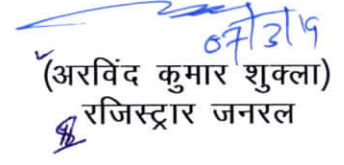 07/3/19
(अरविंद कुमार शुक्ला)
रजिस्ट्रार जनरल